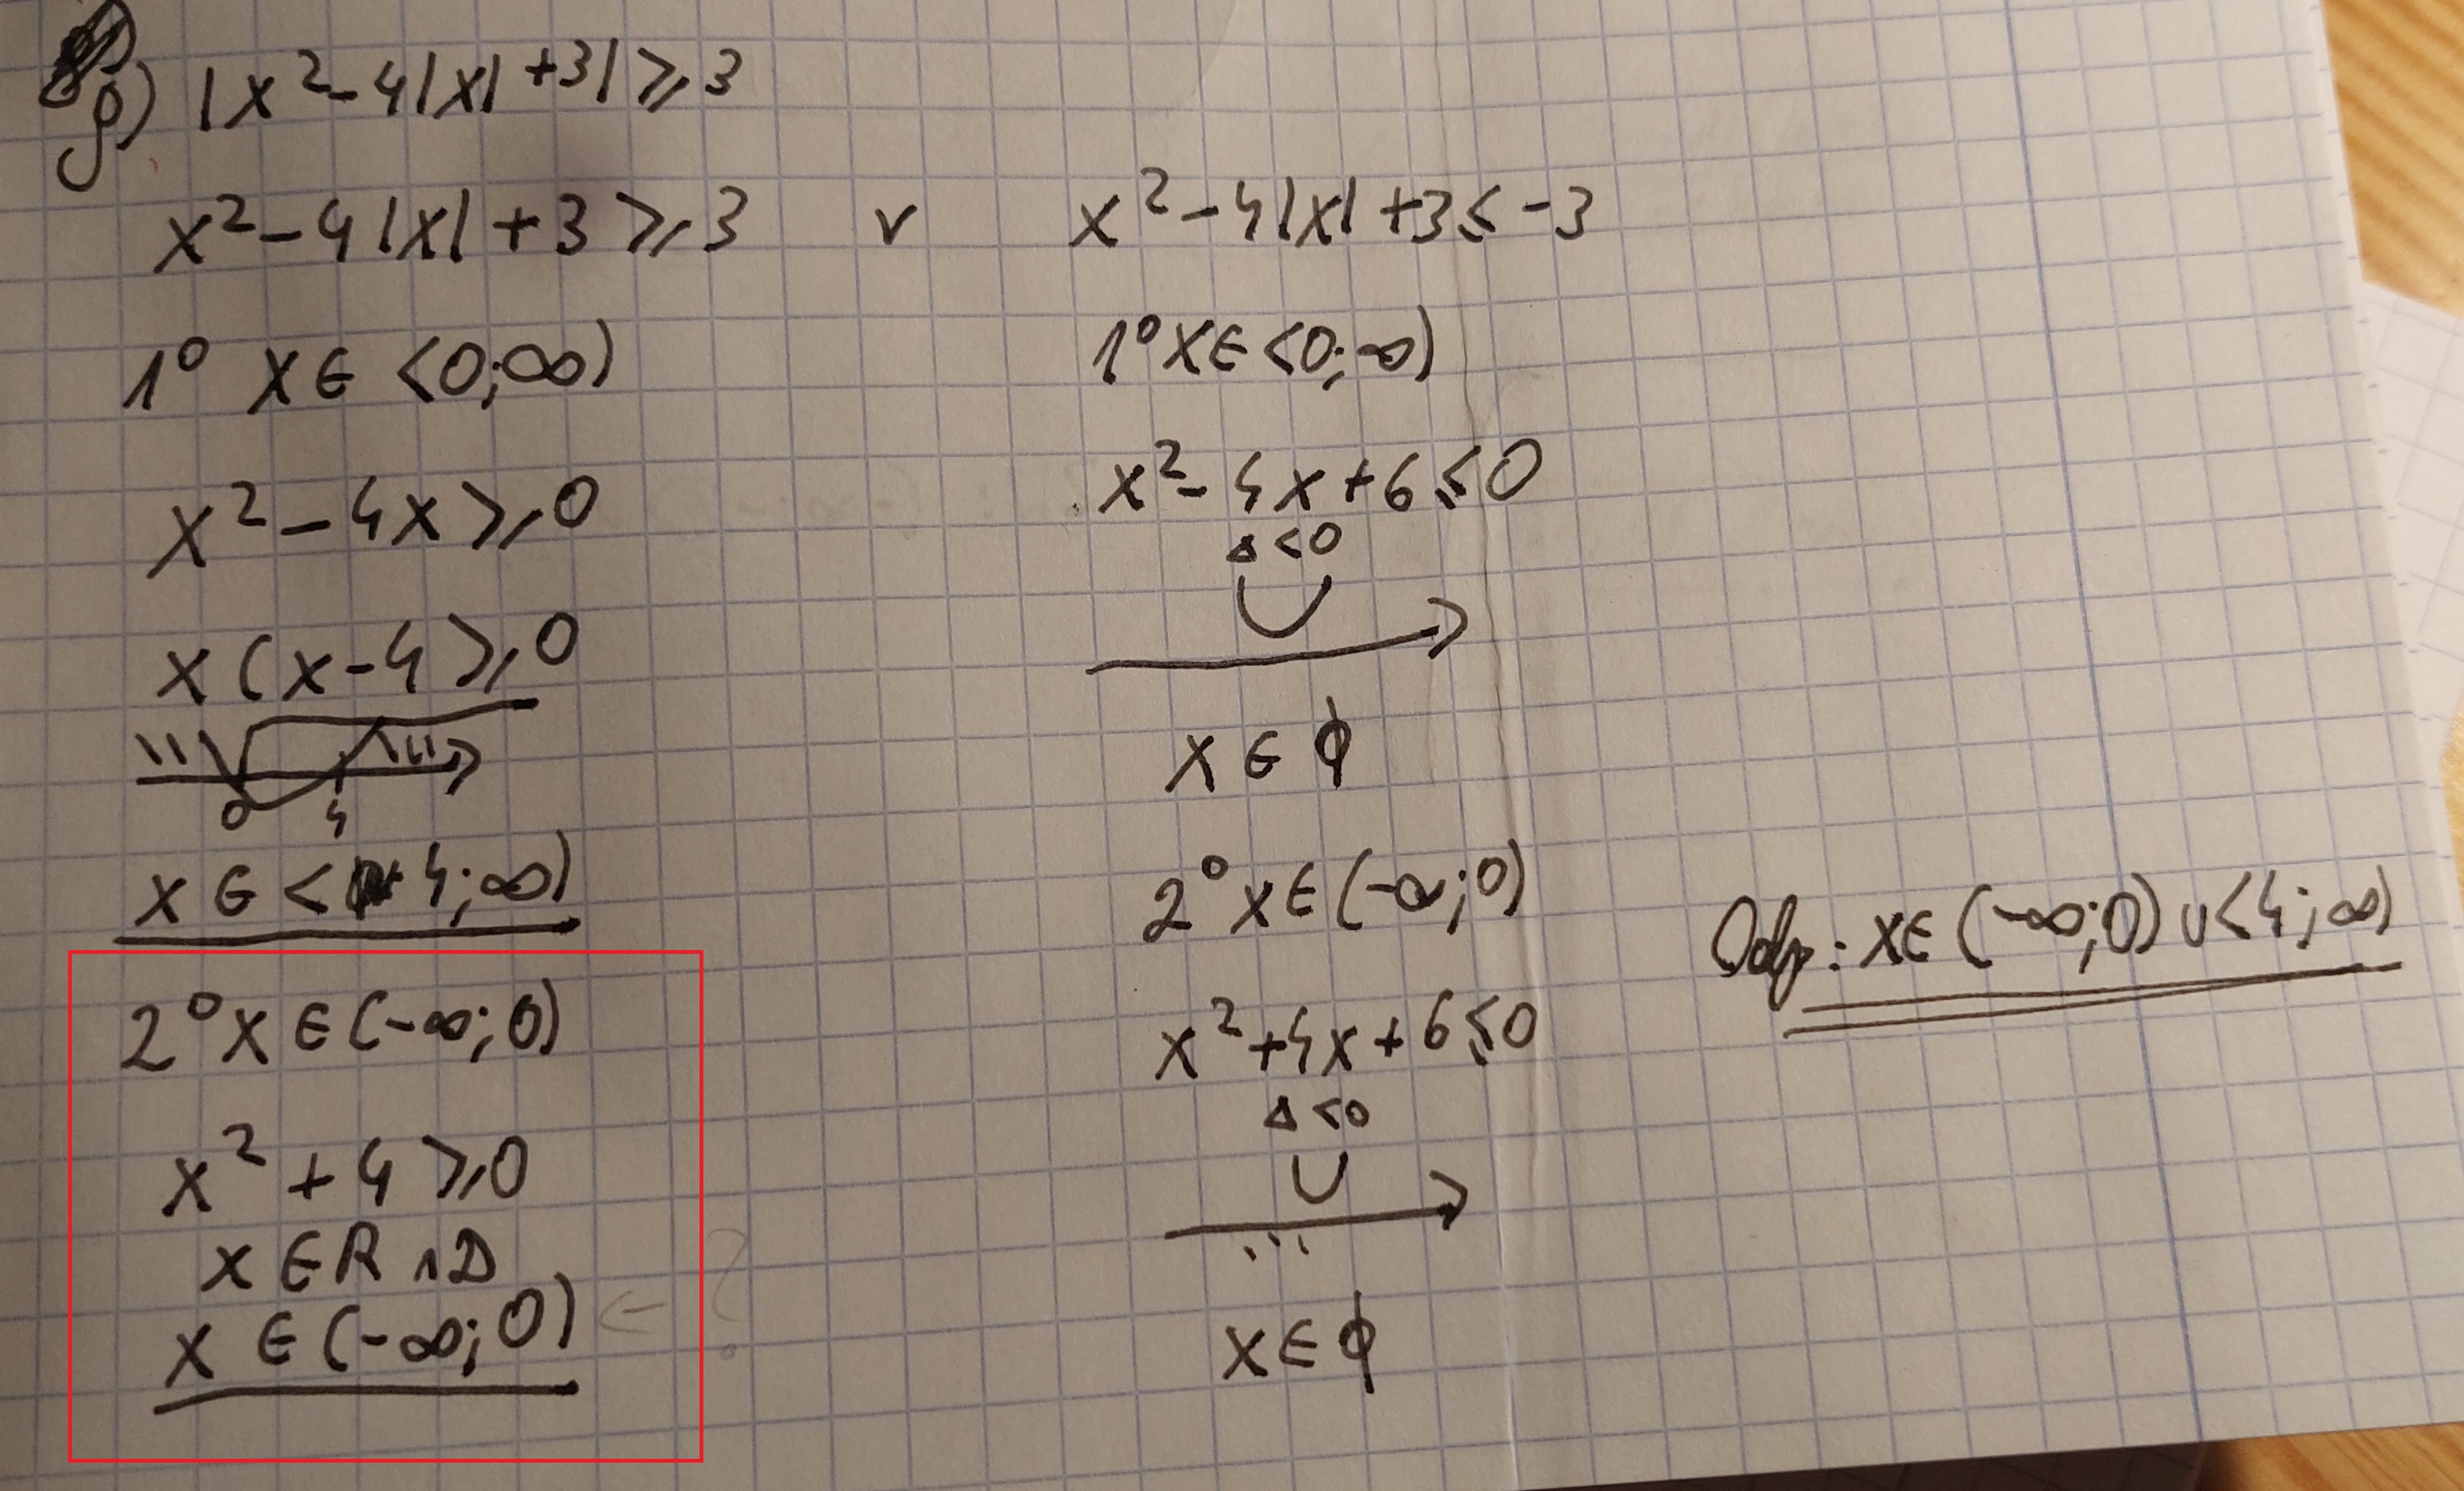 g) |x²-4|x|+3| ⩾ 3
x²-4|x|+3 ⩾ 3 v x²-4|x|+3 ⩽ -3
1° x∈<0;∞)
x²-4x ⩾ 0
x(x-4 ⩾ 0
0 4
x∈<4;∞)
2° x∈(-∞;0)
x²+4 ⩾ 0
x∈R ∧ D
x∈(-∞;0) ← ?
1° x∈<0;∞)
x²-4x+6 ⩽ 0
Δ<0
x∈ϕ
2° x∈(-∞;0)
x²+4x+6 ⩽ 0
Δ<0
x∈ϕ
Odp: x∈(-∞;0)∪<4;∞)